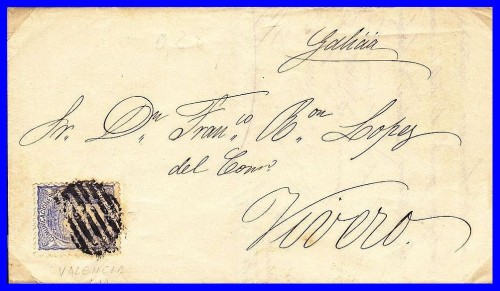 Galicia
Sr. Dn. Franco. Ron. Lopez
del Comº
Vivero.
VALENCIA